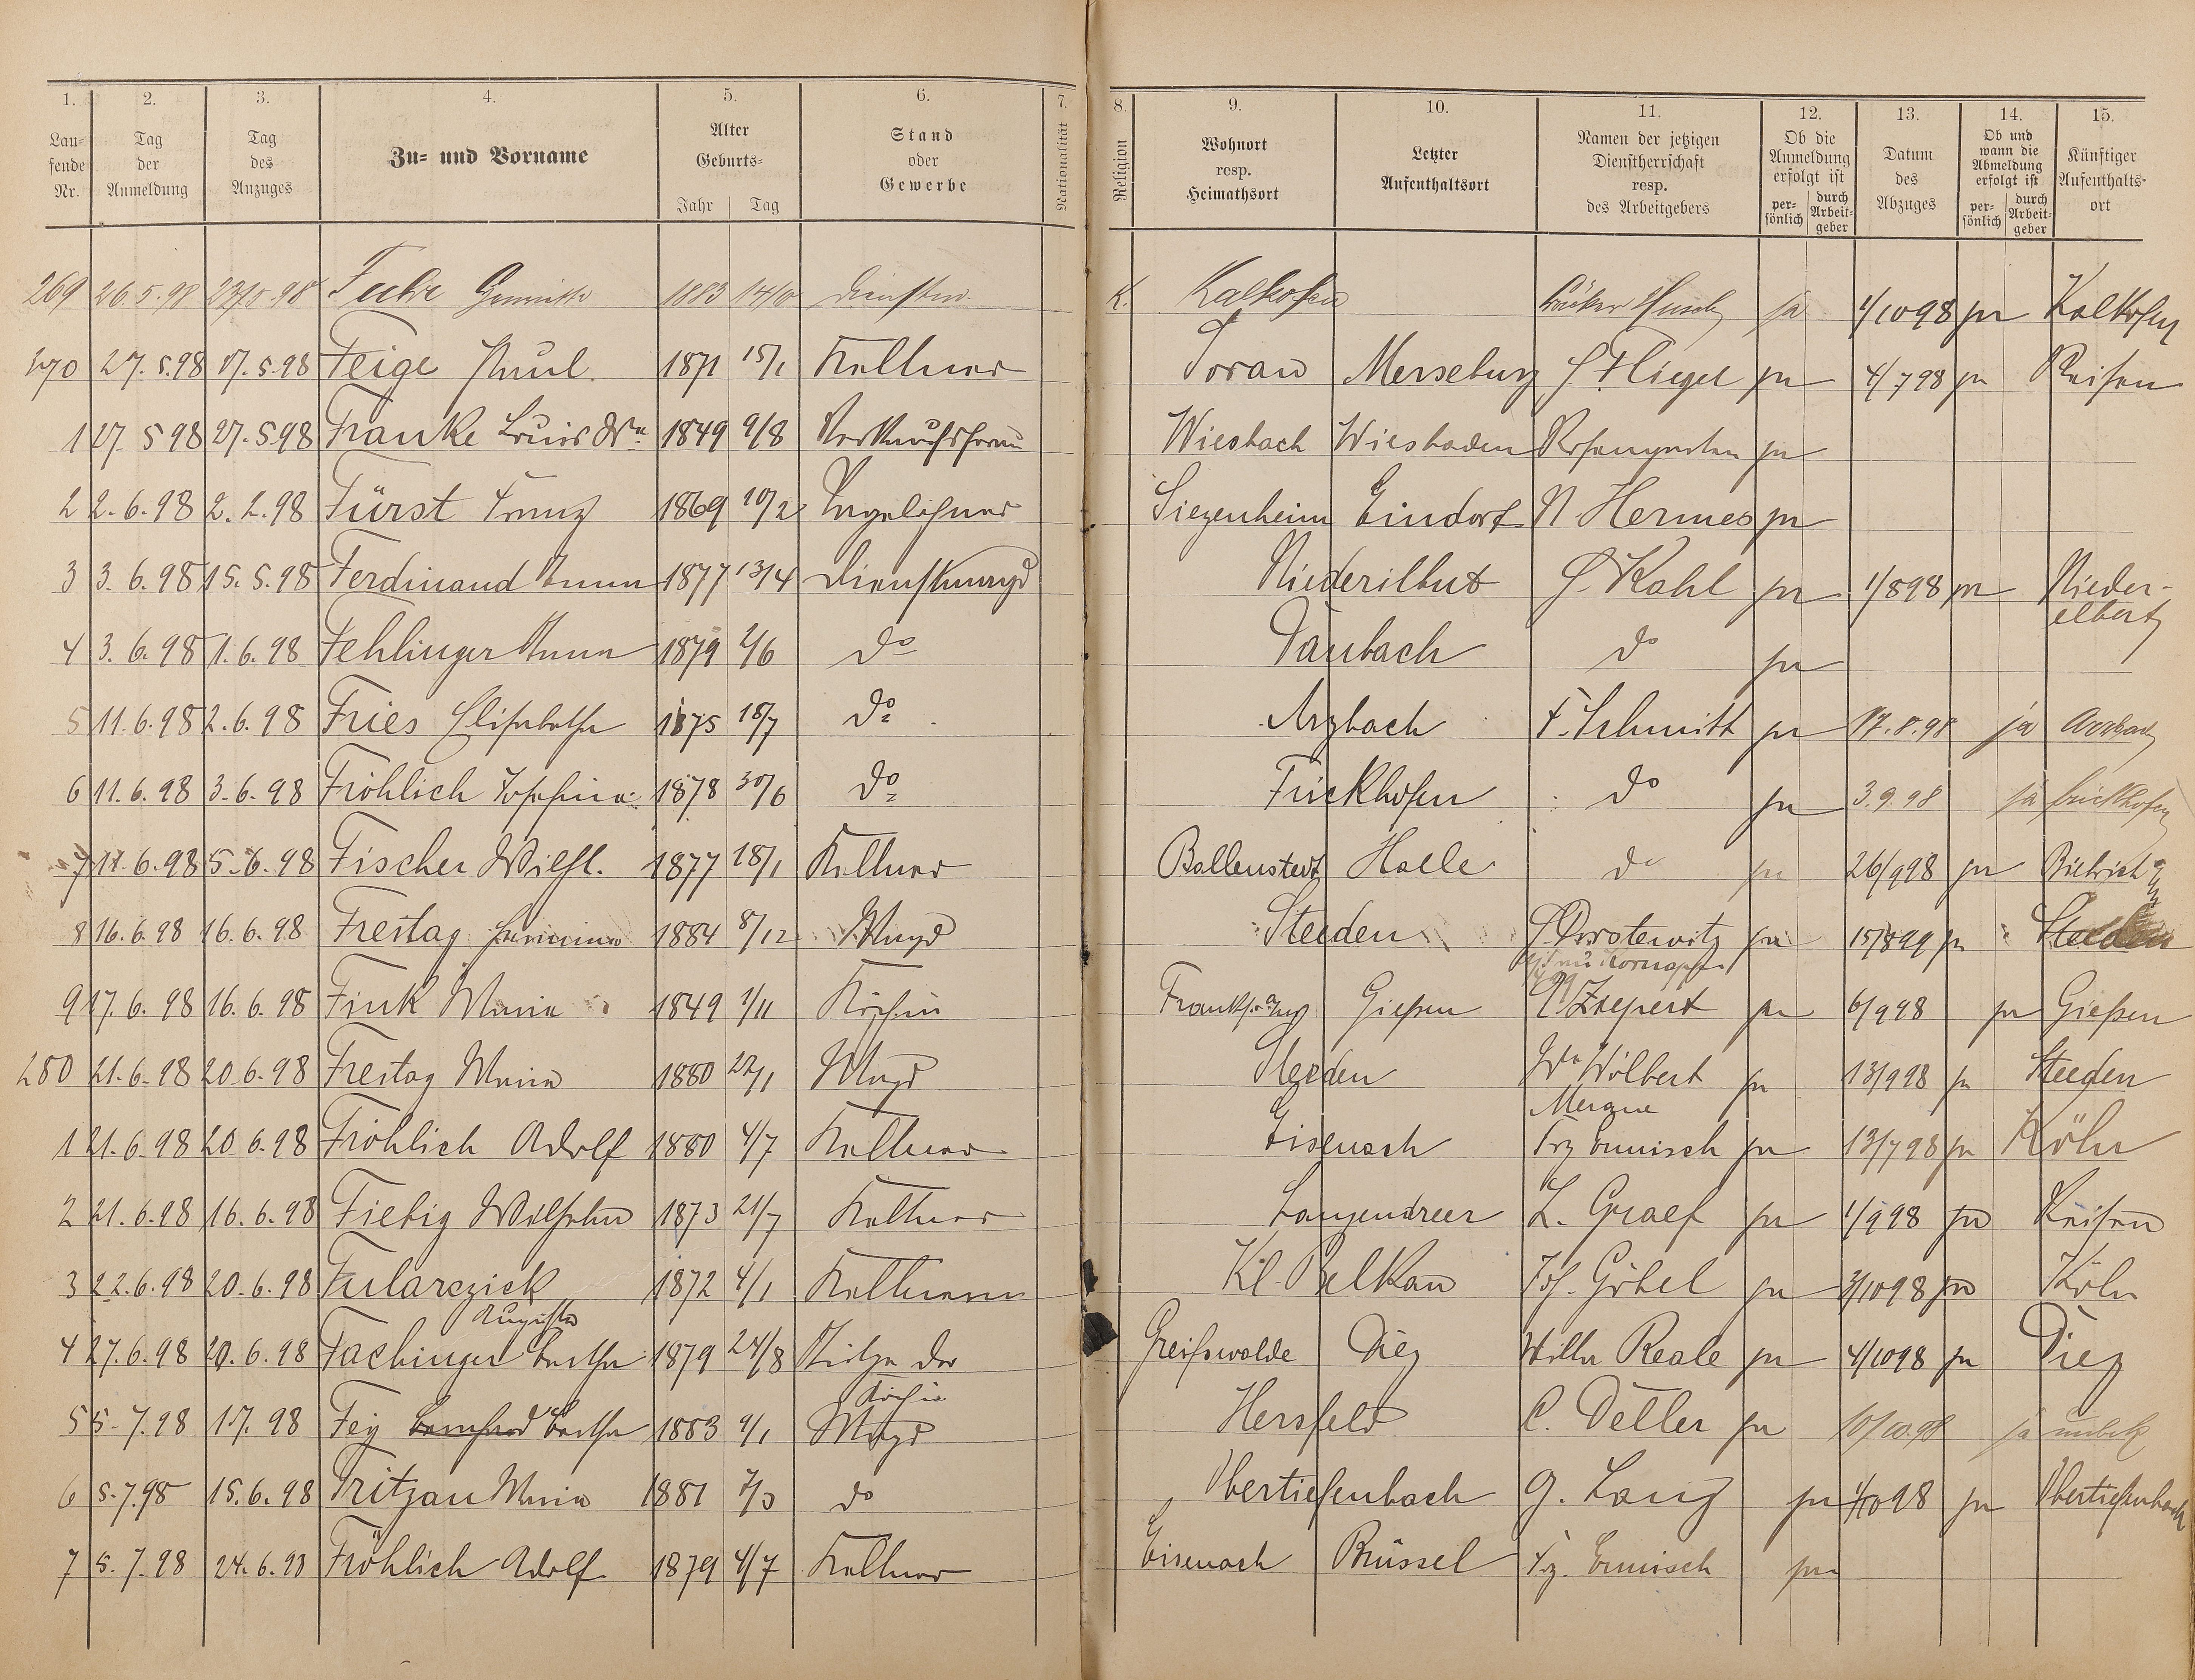 1. 2. 3. 4. 5. 6. 7. 8. 9. 10. 11. 12. 13. 14. 15.
Lau-
fende
Nr.
Tag
der
Anmeldung
Tag
des
Anzuges
Zu- und Vorname
Alter
Geburts-
Jahr Tag
Stand
oder
Gewerbe
Nationalität
Religion
Wohnort
resp.
Heimathsort
Letzter
Aufenthaltsort
Namen der jetzigen
Dienstherrschaft
resp.
des Arbeitgebers
Ob die
Anmeldung
erfolgt ist
per-
sönlich
durch
Arbeit-
geber
Datum
des
Abzuges
Ob und
wann die
Abmeldung
erfolgt ist
per-
sönlich
durch
Arbeit-
geber
Künftiger
Aufenthalts-
ort
269 26.5.98 1883 14/10 K. Kalkofen ja 1/10 98 ja Kalkofen
270 27.5.98 17.5.98 Feige Paul 1871 15/1 Kellner Sorau Merseburg Fliegel ja 4/7 98 ja Reisen
1 27 5 98 27.5.98 Franke Louis Ww 1849 9/8 Verkaufsfrau Wiesbach Wiesbaden ja
2 2.6.98 2.2.98 Fürst Franz 1869 10/2 Tagelöhner Siezenheim Eindorf N Hermes ja
3 3.6.98 15.5.98 Ferdinand Anna 1877 13/4 Dienstmagd Niederilbut G. Kahl ja 1/8 98 ja Nieder-
elbert
4 3.6.98 1.6.98 Fehlinger Anna 1879 2/6 do Daubach do ja
5 11.6.98 2.6.98 Fries Elisabetha 1875 18/7 do Arzbach F. Schmitt ja 17.8.98 ja Arzbach
6 11.6.98 3.6.98 Fröhlich Josefina 1878 30/6 do Frickhofen do ja 3.9.98 ja Frickhofen
7 11.6.98 5.6.98 Fischer Wilh. 1877 18/1 Kellner Ballenstedt Halle do ja 26/9 98 ja Biebrich
8 16.6.98 16.6.98 Freitag 1884 8/12 Magd Steeden ja 15/8 99 ja Steeden
9 17.6.98 16.6.98 Fink Maria 1849 1/11 Köchin Gießen ja 6/9 98 ja Gießen
280 21.6.98 20.6.98 Freitag Maria 1880 22/1 Magd Steeden Ww Wölbert ja 13/9 98 ja Steeden
1 21.6.98 20.6.98 Fröhlich Adolf 1880 4/7 Kellner Eisenach Frz Ermisch ja 13/7 98 ja Köln
2 21.6.98 16.6.98 Fiebig Wilhelm 1873 21/7 Kellner Langendreer L. Graef ja 1/9 98 ja Reisen
3 22.6.98 20.6.98 Fularczick 1872 4/1 Kellnerin Kl. Belkau Jos. Göbel ja 3/10 98 ja Köln
Augusta
4 27.6.98 20.6.98 Fachinger Bertha 1879 24/8 Stütze der Greifswalde Diez Willn Reale ja 4/10 98 ja Diez
Köchin
5 5.7.98 1.7.98 Fey Bernhard Bertha 1883 9/1 Magd Hersfeld C. Deller ja 10/10.98 ja unbek
6 5.7.98 15.6.98 Fritzan Maria 1881 7/3 do Obertiefenbach G. Lang ja 1/10 98 ja Obertiefenbach
7 5.7.98 24.6.98 Fröhlich Adolf 1879 4/7 Kellner Eisenach Brüssel Frz. Ermisch ja